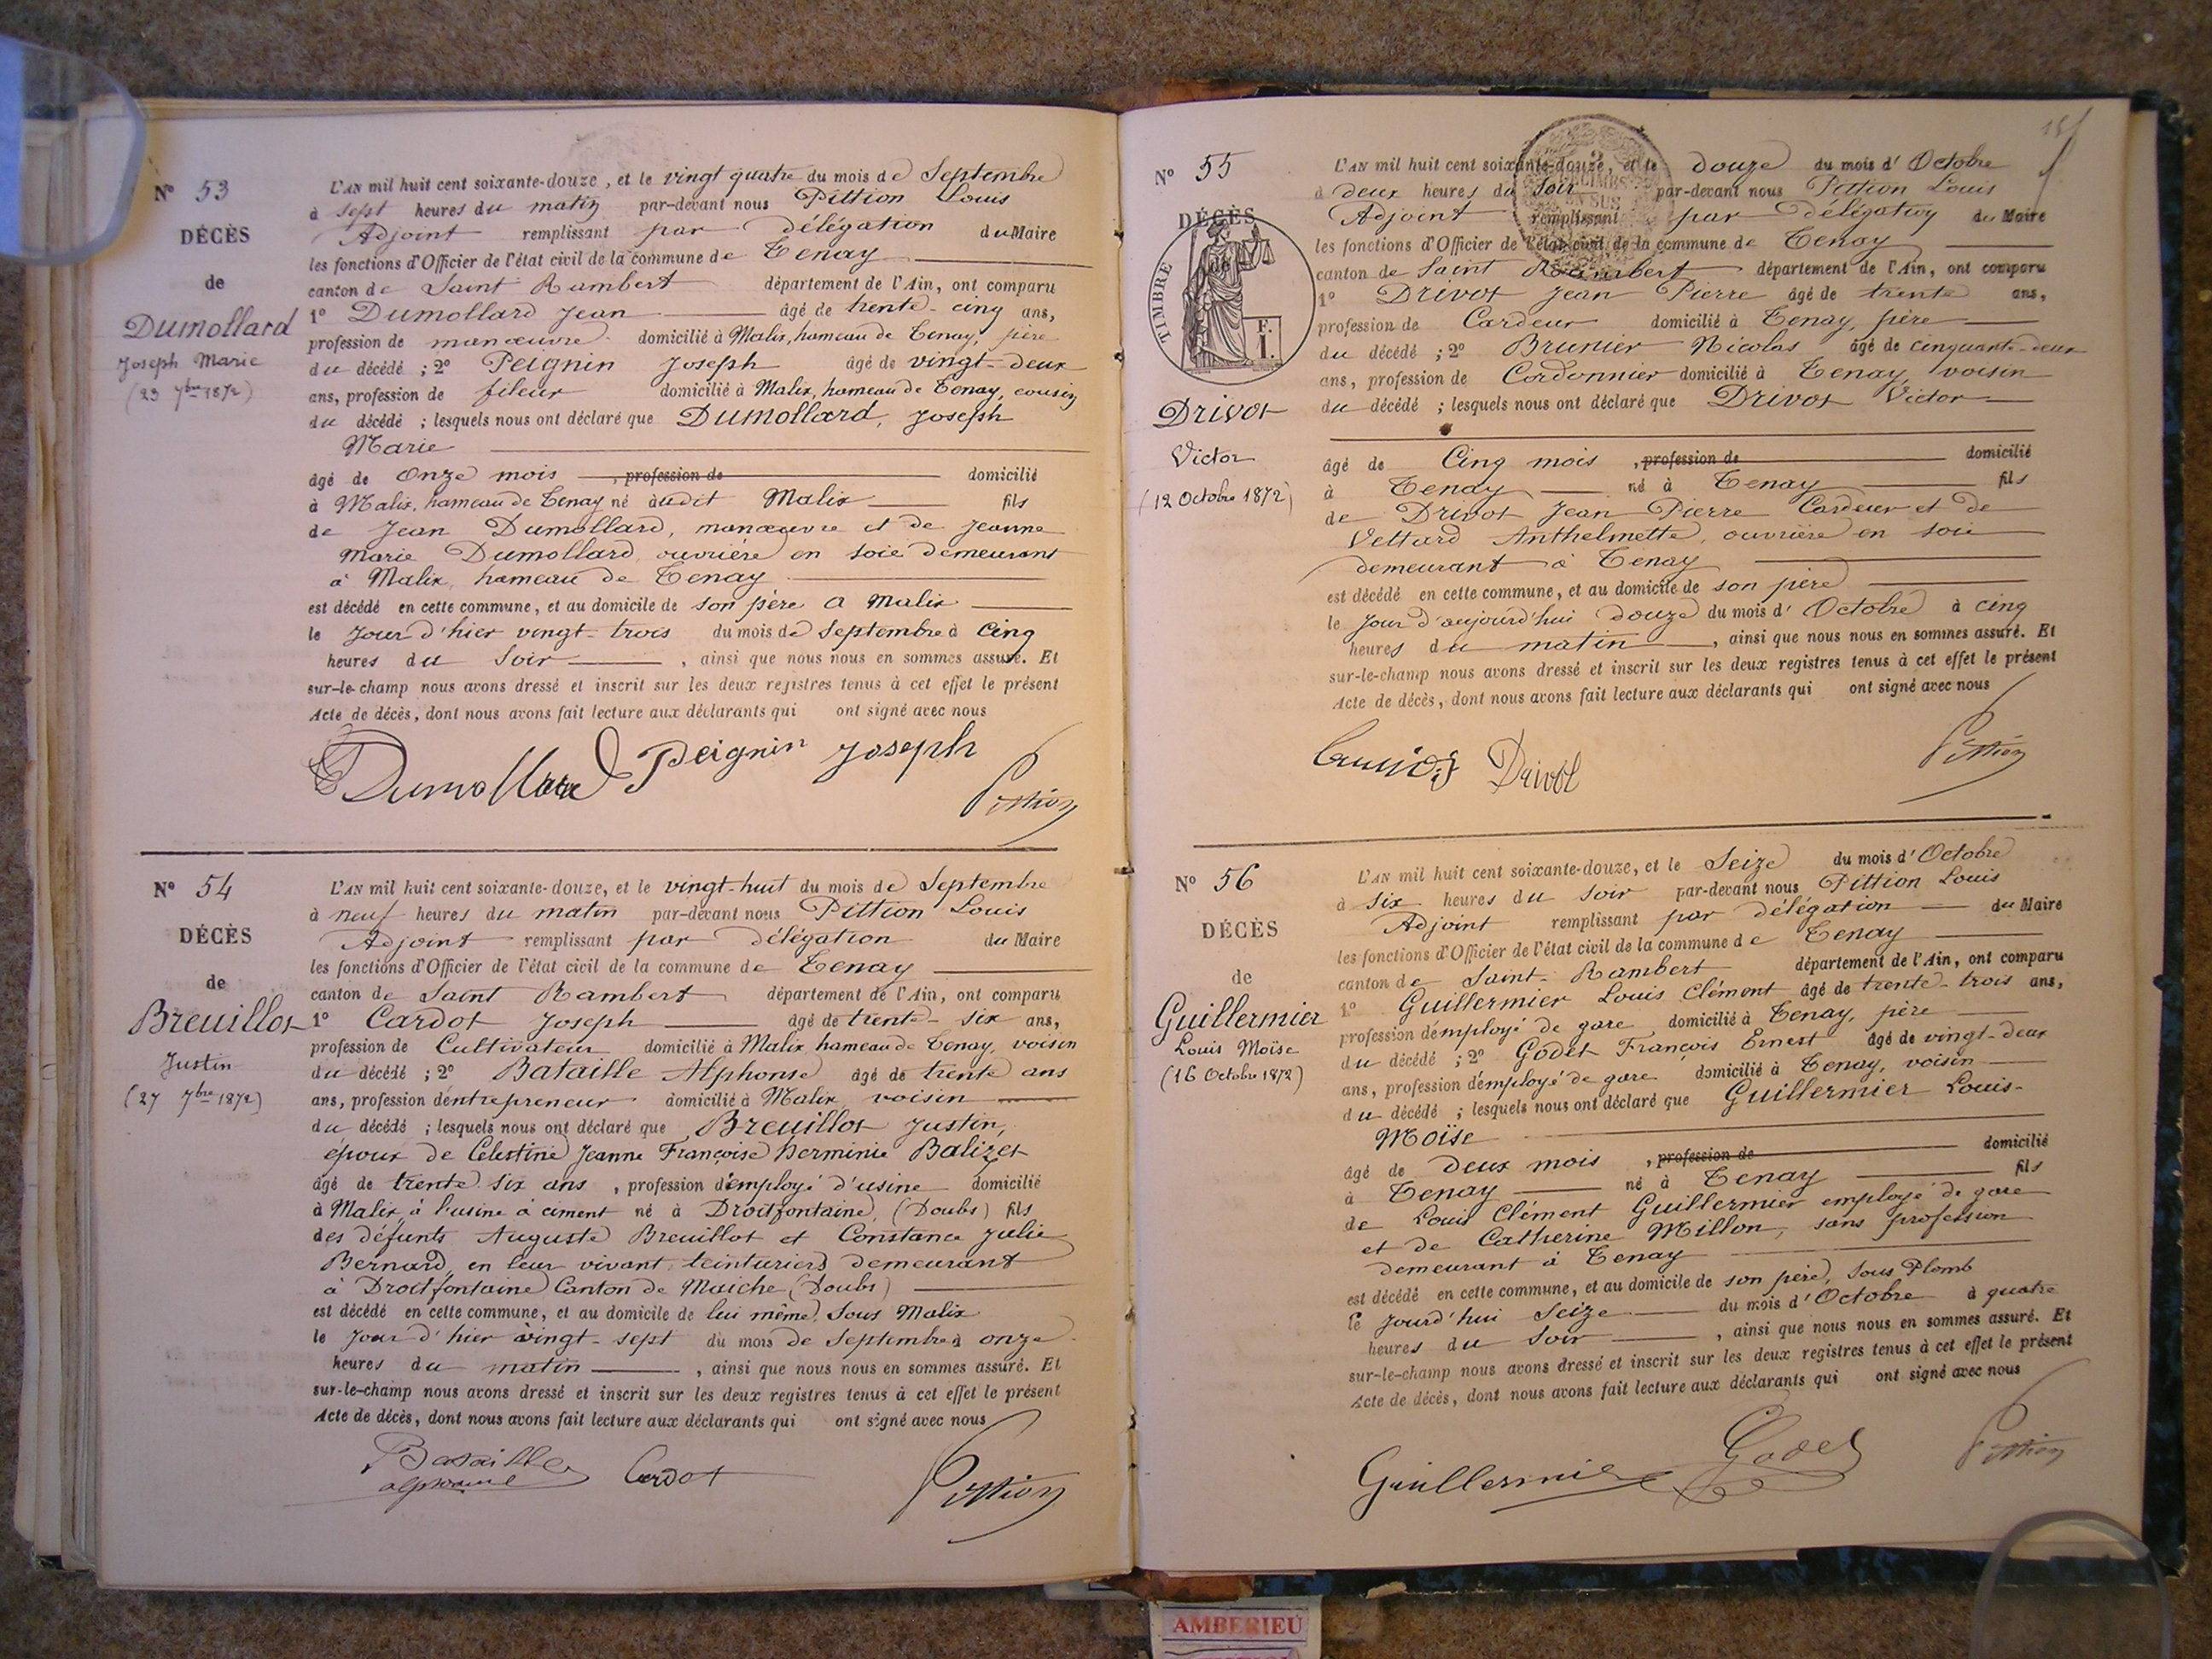 N° 53
DÉCÈS
de
Dumollard
Joseph Marie
(23 7bre 1872)
L'AN mil huit cent soixante-douze, et le vingt quatre du mois de Septembre
à sept heures du matin par-devant nous Pittion Louis
Adjoint remplissant par délégation du Maire
les fonctions d'Officier de l'état civil de la commune de Tenay
canton de Saint Rambert département de l'Ain, ont comparu
1° Dumollard Jean âgé de trente-cinq ans,
profession de manœuvre domicilié à Malix, hameau de Tenay, père
du décédé ; 2° Peignin Joseph âgé de vingt-deux
ans, profession de fileur domicilié à Malix, hameau de Tenay, cousin
du décédé ; lesquels nous ont déclaré que Dumollard, Joseph
Marie
âgé de onze mois , profession de domicilié
à Malix, hameau de Tenay né audit Malix fils
de Jean Dumollard, manœuvre et de Jeanne
Marie Dumollard, ouvrière en soie demeurant
à Malix, hameau de Tenay
est décédé en cette commune, et au domicile de son père à Malix
le jour d'hier vingt-trois du mois de Septembre à cinq
heures du soir , ainsi que nous nous en sommes assuré. Et
sur-le-champ nous avons dressé et inscrit sur les deux registres tenus à cet effet le présent
Acte de décès, dont nous avons fait lecture aux déclarants qui ont signé avec nous
Dumollard Peignin Joseph
Pittion
N° 54
DÉCÈS
de
Breuillot
Justin
(27 7bre 1872)
L'AN mil huit cent soixante-douze, et le vingt-huit du mois de Septembre
à neuf heures du matin par-devant nous Pittion Louis
Adjoint remplissant par délégation du Maire
les fonctions d'Officier de l'état civil de la commune de Tenay
canton de Saint Rambert département de l'Ain, ont comparu
1° Cardot Joseph âgé de trente-six ans,
profession de Cultivateur domicilié à Malix hameau de Tenay, voisin
du décédé ; 2° Bataille Alphonse âgé de trente ans
ans, profession d'entrepreneur domicilié à Malix, voisin
du décédé ; lesquels nous ont déclaré que Breuillot Justin,
époux de Célestine Jeanne Françoise Herminie Balizet
âgé de trente six ans , profession d'employé d'usine domicilié
à Malix, à l'usine à ciment né à Droitfontaine, (Doubs) fils
des défunts Auguste Breuillot et Constance Julie
Bernard, en leur vivant teinturiers demeurant
à Droitfontaine Canton de Maiche (Doubs)
est décédé en cette commune, et au domicile de lui même, sous Malix
le jour d'hier vingt-sept du mois de Septembre à onze
heures du matin , ainsi que nous nous en sommes assuré. Et
sur-le-champ nous avons dressé et inscrit sur les deux registres tenus à cet effet le présent
Acte de décès, dont nous avons fait lecture aux déclarants qui ont signé avec nous
Bataille
alphonse Cardot
Pittion
N° 55
DÉCÈS
de
TIMBRE
F.
1.
Drivot
Victor
(12 Octobre 1872)
L'AN mil huit cent soixante-douze, et le douze du mois d'Octobre
à deux heures du soir par-devant nous Pittion Louis
Adjoint remplissant par délégation du Maire
les fonctions d'Officier de l'état civil de la commune de Tenay
canton de Saint Rambert département de l'Ain, ont comparu
1° Drivot Jean Pierre âgé de trente ans,
profession de Cardeur domicilié à Tenay, père
du décédé ; 2° Brunier Nicolas âgé de cinquante-deux
ans, profession de Cordonnier domicilié à Tenay, voisin
du décédé ; lesquels nous ont déclaré que Drivot Victor
âgé de Cinq mois , profession de domicilié
à Tenay né à Tenay fils
de Drivot Jean Pierre Cardeur et de
Vettard Anthelmette, ouvrière en soie
demeurant à Tenay
est décédé en cette commune, et au domicile de son père
le jour d'aujourd'hui douze du mois d'Octobre à cinq
heures du matin , ainsi que nous nous en sommes assuré. Et
sur-le-champ nous avons dressé et inscrit sur les deux registres tenus à cet effet le présent
Acte de décès, dont nous avons fait lecture aux déclarants qui ont signé avec nous
Drivot
Pittion
N° 56
DÉCÈS
de
Guillermier
Louis Moïse
(16 Octobre 1872)
L'AN mil huit cent soixante-douze, et le Seize du mois d'Octobre
à six heures du soir par-devant nous Pittion Louis
Adjoint remplissant par délégation du Maire
les fonctions d'Officier de l'état civil de la commune de Tenay
canton de Saint-Rambert département de l'Ain, ont comparu
1° Guillermier Louis Clément âgé de trente-trois ans,
profession d'employé de gare domicilié à Tenay, père
du décédé ; 2° Godet François Ernest âgé de vingt-deux
ans, profession d'employé de gare domicilié à Tenay, voisin
du décédé ; lesquels nous ont déclaré que Guillermier Louis-
Moïse
âgé de deux mois , profession de domicilié
à Tenay né à Tenay fils
de Louis Clément Guillermier employé de gare
et de Catherine Millon, sans profession
demeurant à Tenay
est décédé en cette commune, et au domicile de son père, sous Plomb
le jourd'hui Seize du mois d'Octobre à quatre
heures du soir , ainsi que nous nous en sommes assuré. Et
sur-le-champ nous avons dressé et inscrit sur les deux registres tenus à cet effet le présent
Acte de décès, dont nous avons fait lecture aux déclarants qui ont signé avec nous
Guillermier Godet
Pittion
AMBERIEU